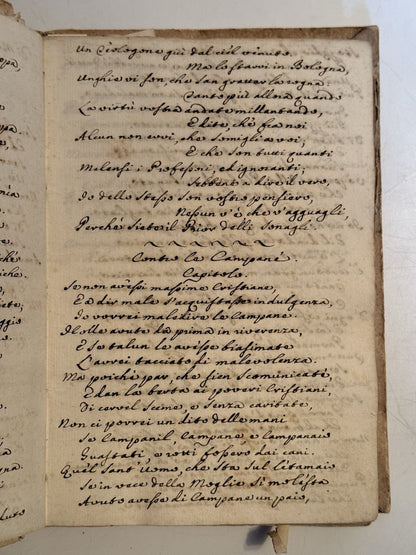 Un Ciclogone giù dal ciel venuto.
Ma lo starvi in Bologna,
Unghie vi son, che san grattar la rogna:
Tanto più allora quando
La virtù vostra andate millantando,
E dite, che fra noi
Alcun non evvi, che somigli a voi;
E che son tutti quanti
Melensi i Professori, ed ignoranti;
Sebbene a dire il vero,
Io dello stesso son vostro pensiero,
Nessun v'è che v'agguagli,
Perché siete il Prior delli Sonagli.
Contro le Campane.
Capitolo.
Se non avessi massime Cristiane,
E a dir male s'acquistasse indulgenza,
Io vorrei maledire le Campane.
Il olle avute da prima in riverenza,
E se talun le avesse biasimate
L'avrei tacciato di malevolenza.
Ma poiché par, che sien scomunicate,
E dan la berta ai poveri Cristiani,
Di cervel sceme, e senza caritate,
Non ci vorrei un dito delle mani
Se Campanil, Campane, e Campanaio
Guastati, e rotti fossero dai cani.
Quel Sant'Uomo, che sta sul Litanaio
Se in vece della Moglie sì molesta
Avuto avesse di Campane un paio,